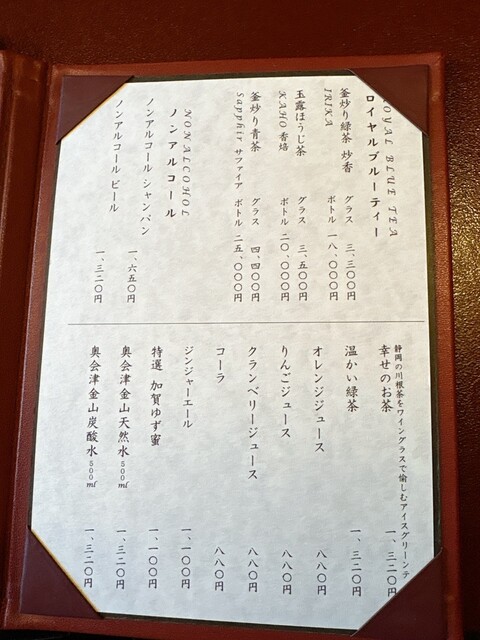 ROYAL BLUE TEA
ロイヤルブルーティー
釜炒り緑茶 炒香 グラス 三、三〇〇円
IRIKA ボトル 一八、〇〇〇円
玉露ほうじ茶 グラス 三、五〇〇円
KAHO 香焙 ボトル 二〇、〇〇〇円
釜炒り青茶 グラス 四、四〇〇円
Sapphir サファイア ボトル 二五、〇〇〇円
NONALCOHOL
ノンアルコール
ノンアルコール シャンパン 一、六五〇円
ノンアルコール ビール 一、三二〇円
静岡の川根茶をワイングラスで愉しむアイスグリーンテ
幸せのお茶 一、三二〇円
温かい緑茶 一、三二〇円
オレンジジュース 八八〇円
りんごジュース 八八〇円
クランベリージュース 八八〇円
コーラ 八八〇円
ジンジャーエール 一、一〇〇円
特選 加賀ゆず蜜 一、一〇〇円
奥会津金山天然水 500ml 一、三二〇円
奥会津金山炭酸水 500ml 一、三二〇円